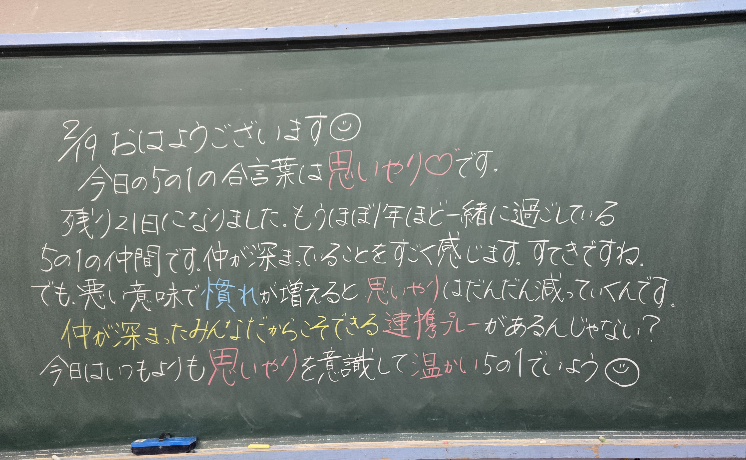 2/19 おはようございます☺
今日の5の1の合言葉は思いやり♡です.
残り21日になりました.もうほぼ1年ほど一緒に過ごしている
5の1の仲間です.仲が深まっていることをすごく感じます.すてきですね.
でも.悪い意味で慣れが増えると思いやりはだんだん減っていくんです.
仲が深まったみんなだからこそできる連携プレーがあるんじゃない?
今日はいつもよりも思いやりを意識して温かい5の1でいよう☺